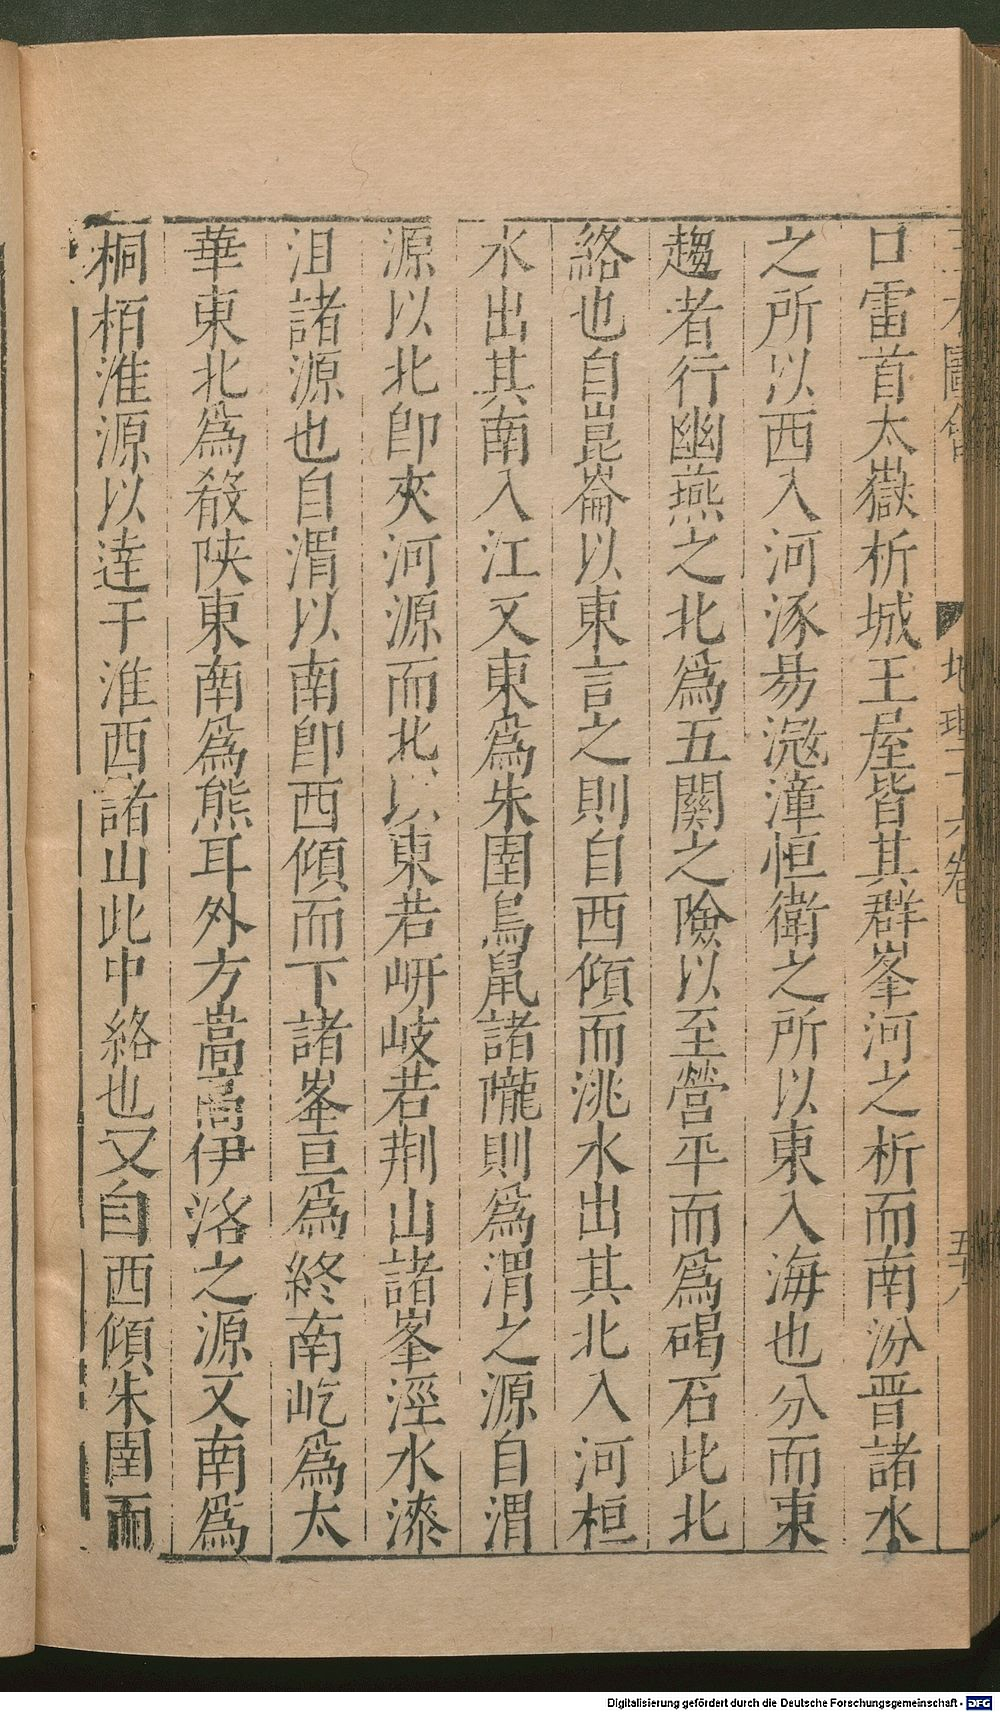 口雷首太嶽析城王屋皆其群峯河之析而南汾晋諸水
之所以西入河涿昜㴲漳恒衛之所以東入海也分而東
趨者行幽燕之北為五關之險以至營平而為碣石此北
絡也自崑崙以東言之則自西傾而洮水出其北入河桓
水出其南入江又東為朱圉鳥鼠諸隴則為渭之源自渭
源以北卽夾河源而北以東若岍岐若荆山諸峯涇水漆
沮諸源也自渭以南卽西傾而下諸峯亘為終南屹為太
華東北為殽陜東南為熊耳外方嵩高伊洛之源又南為
桐栢淮源以達于淮西諸山此中絡也又自西傾朱圉而
地理十六卷
五十八
Digitalisierung gefördert durch die Deutsche Forschungsgemeinschaft - DFG